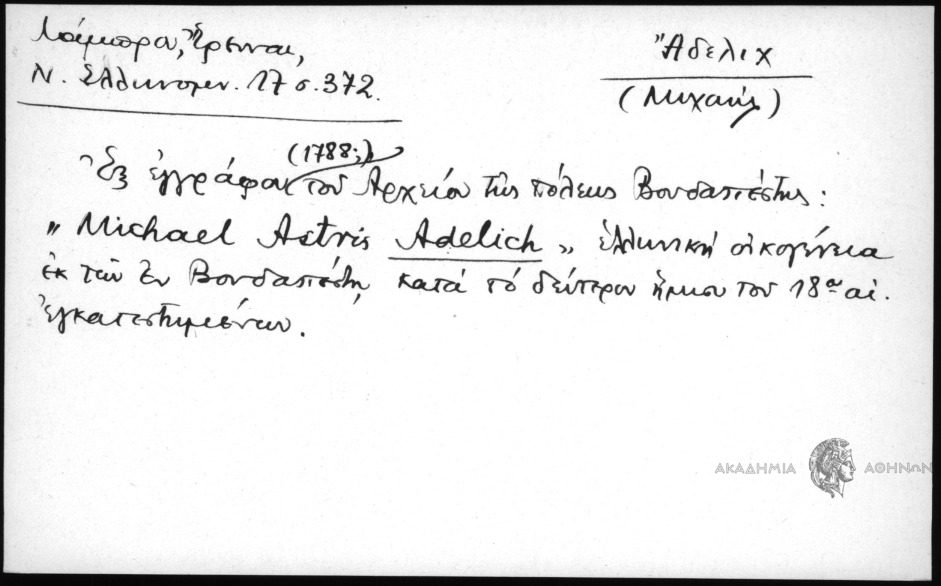 Λάμπρου, Ἔρευναι,
Ν. Ἑλληνομν. 17 σ. 372.
Ἄδελιχ
(Μιχαήλ)
Ἐξ ἐγγράφου (1788;) τοῦ Ἀρχείου τῆς πόλεως Βουδαπέστης:
"Michael Astris Adelich" ἑλληνική οἰκογένεια
ἐκ τῶν ἐν Βουδαπέστῃ κατά τό δεύτερον ἥμισυ τοῦ 18ου αἰ.
ἐγκατεστημένων.
ΑΚΑΔΗΜΙΑ ΑΘΗΝΩΝ